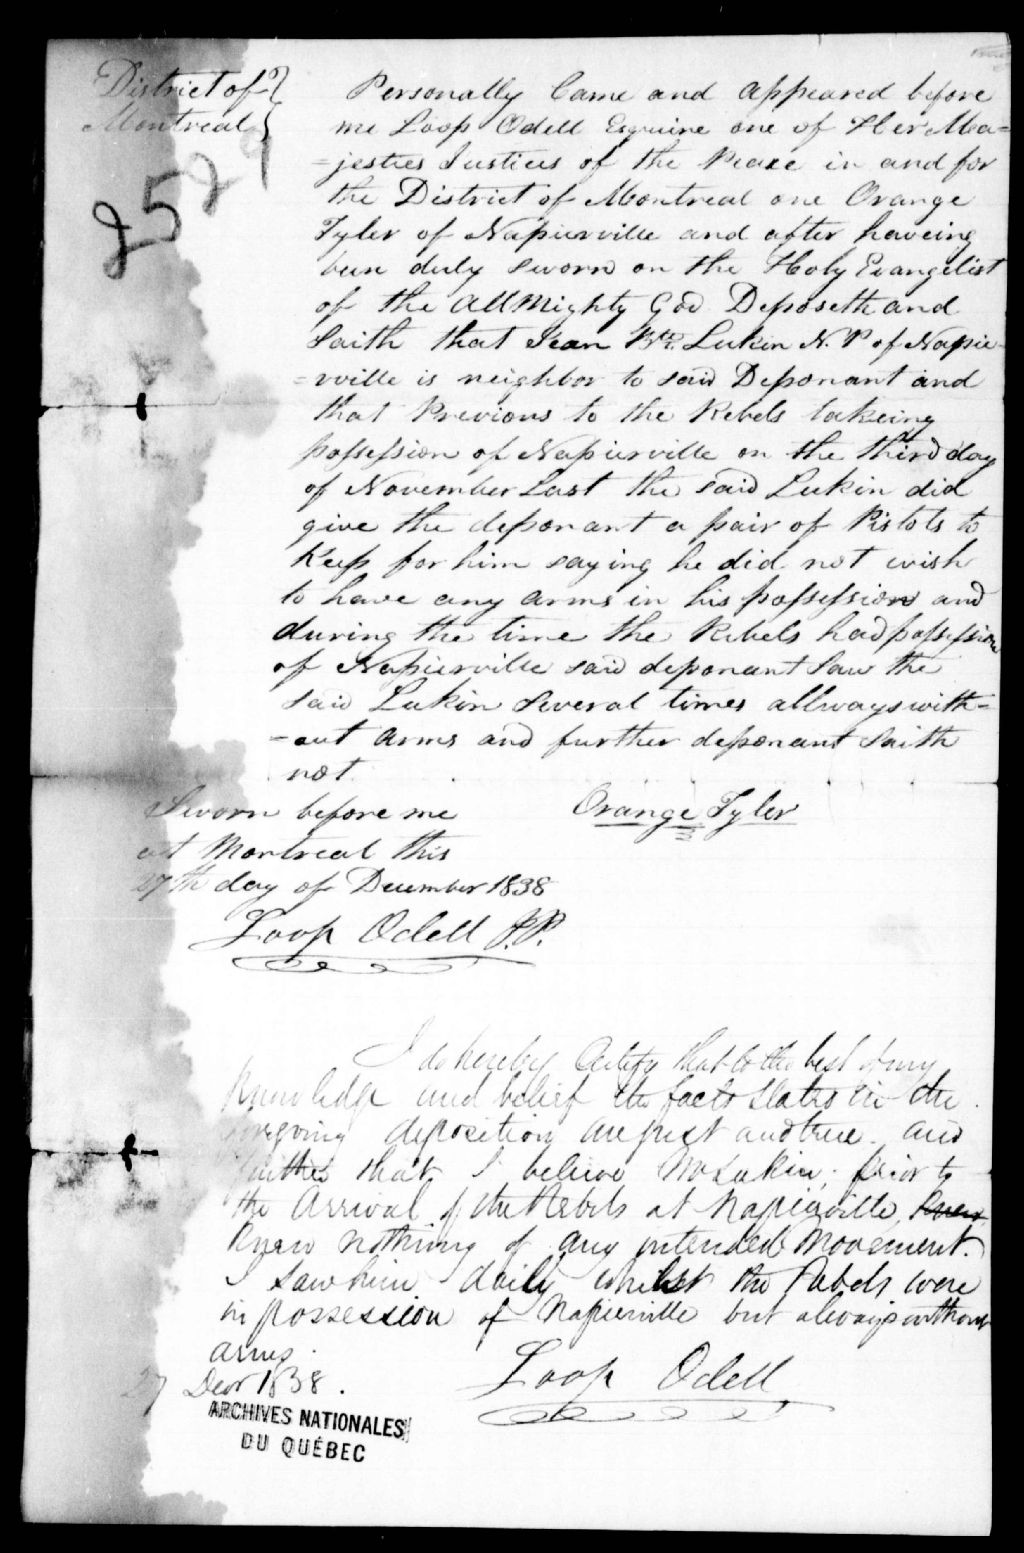 District of
Montreal
2529
Personally Came and appeared before
me Loop Odell Esquire one of Her Ma=
=jesties Justices of the Peace in and for
the District of Montreal one Orange
Tyler of Napierville and after haveing
been duly sworn on the Holy Evangelist
of the AllMighty God Deposeth and
Saith that Jean Bte. Lukin N. P of Napie=
=rville is neighbor to said Deponant and
that Previous to the Rebels takeing
possession of Napierville on the third day
of November Last the said Lukin did
give the deponant a pair of Pistols to
Keep for him saying he did not wish
to have any arms in his possession and
during the time the Rebels had possession
of Napierville said deponant Saw the
said Lukin Several times allways with=
=out arms and further deponant Saith
not
Sworn before me
at Montreal this
27th day of December 1838
Orange Tyler
Loop Odell J.P.
I do hereby Certify that to the best of my
knowledge and belief the facts stated in the
foregoing deposition are just and true. and
further that I believe Mr Lukin, prior to
the Arrival of the Rebels at Napierville, Knew
Knew nothing of any intended movement.
I saw him daily whilst the Rebels were
in possession of Napierville but always without
arms.
27 Decr 1838.
Loop Odell
ARCHIVES NATIONALES
DU QUÉBEC